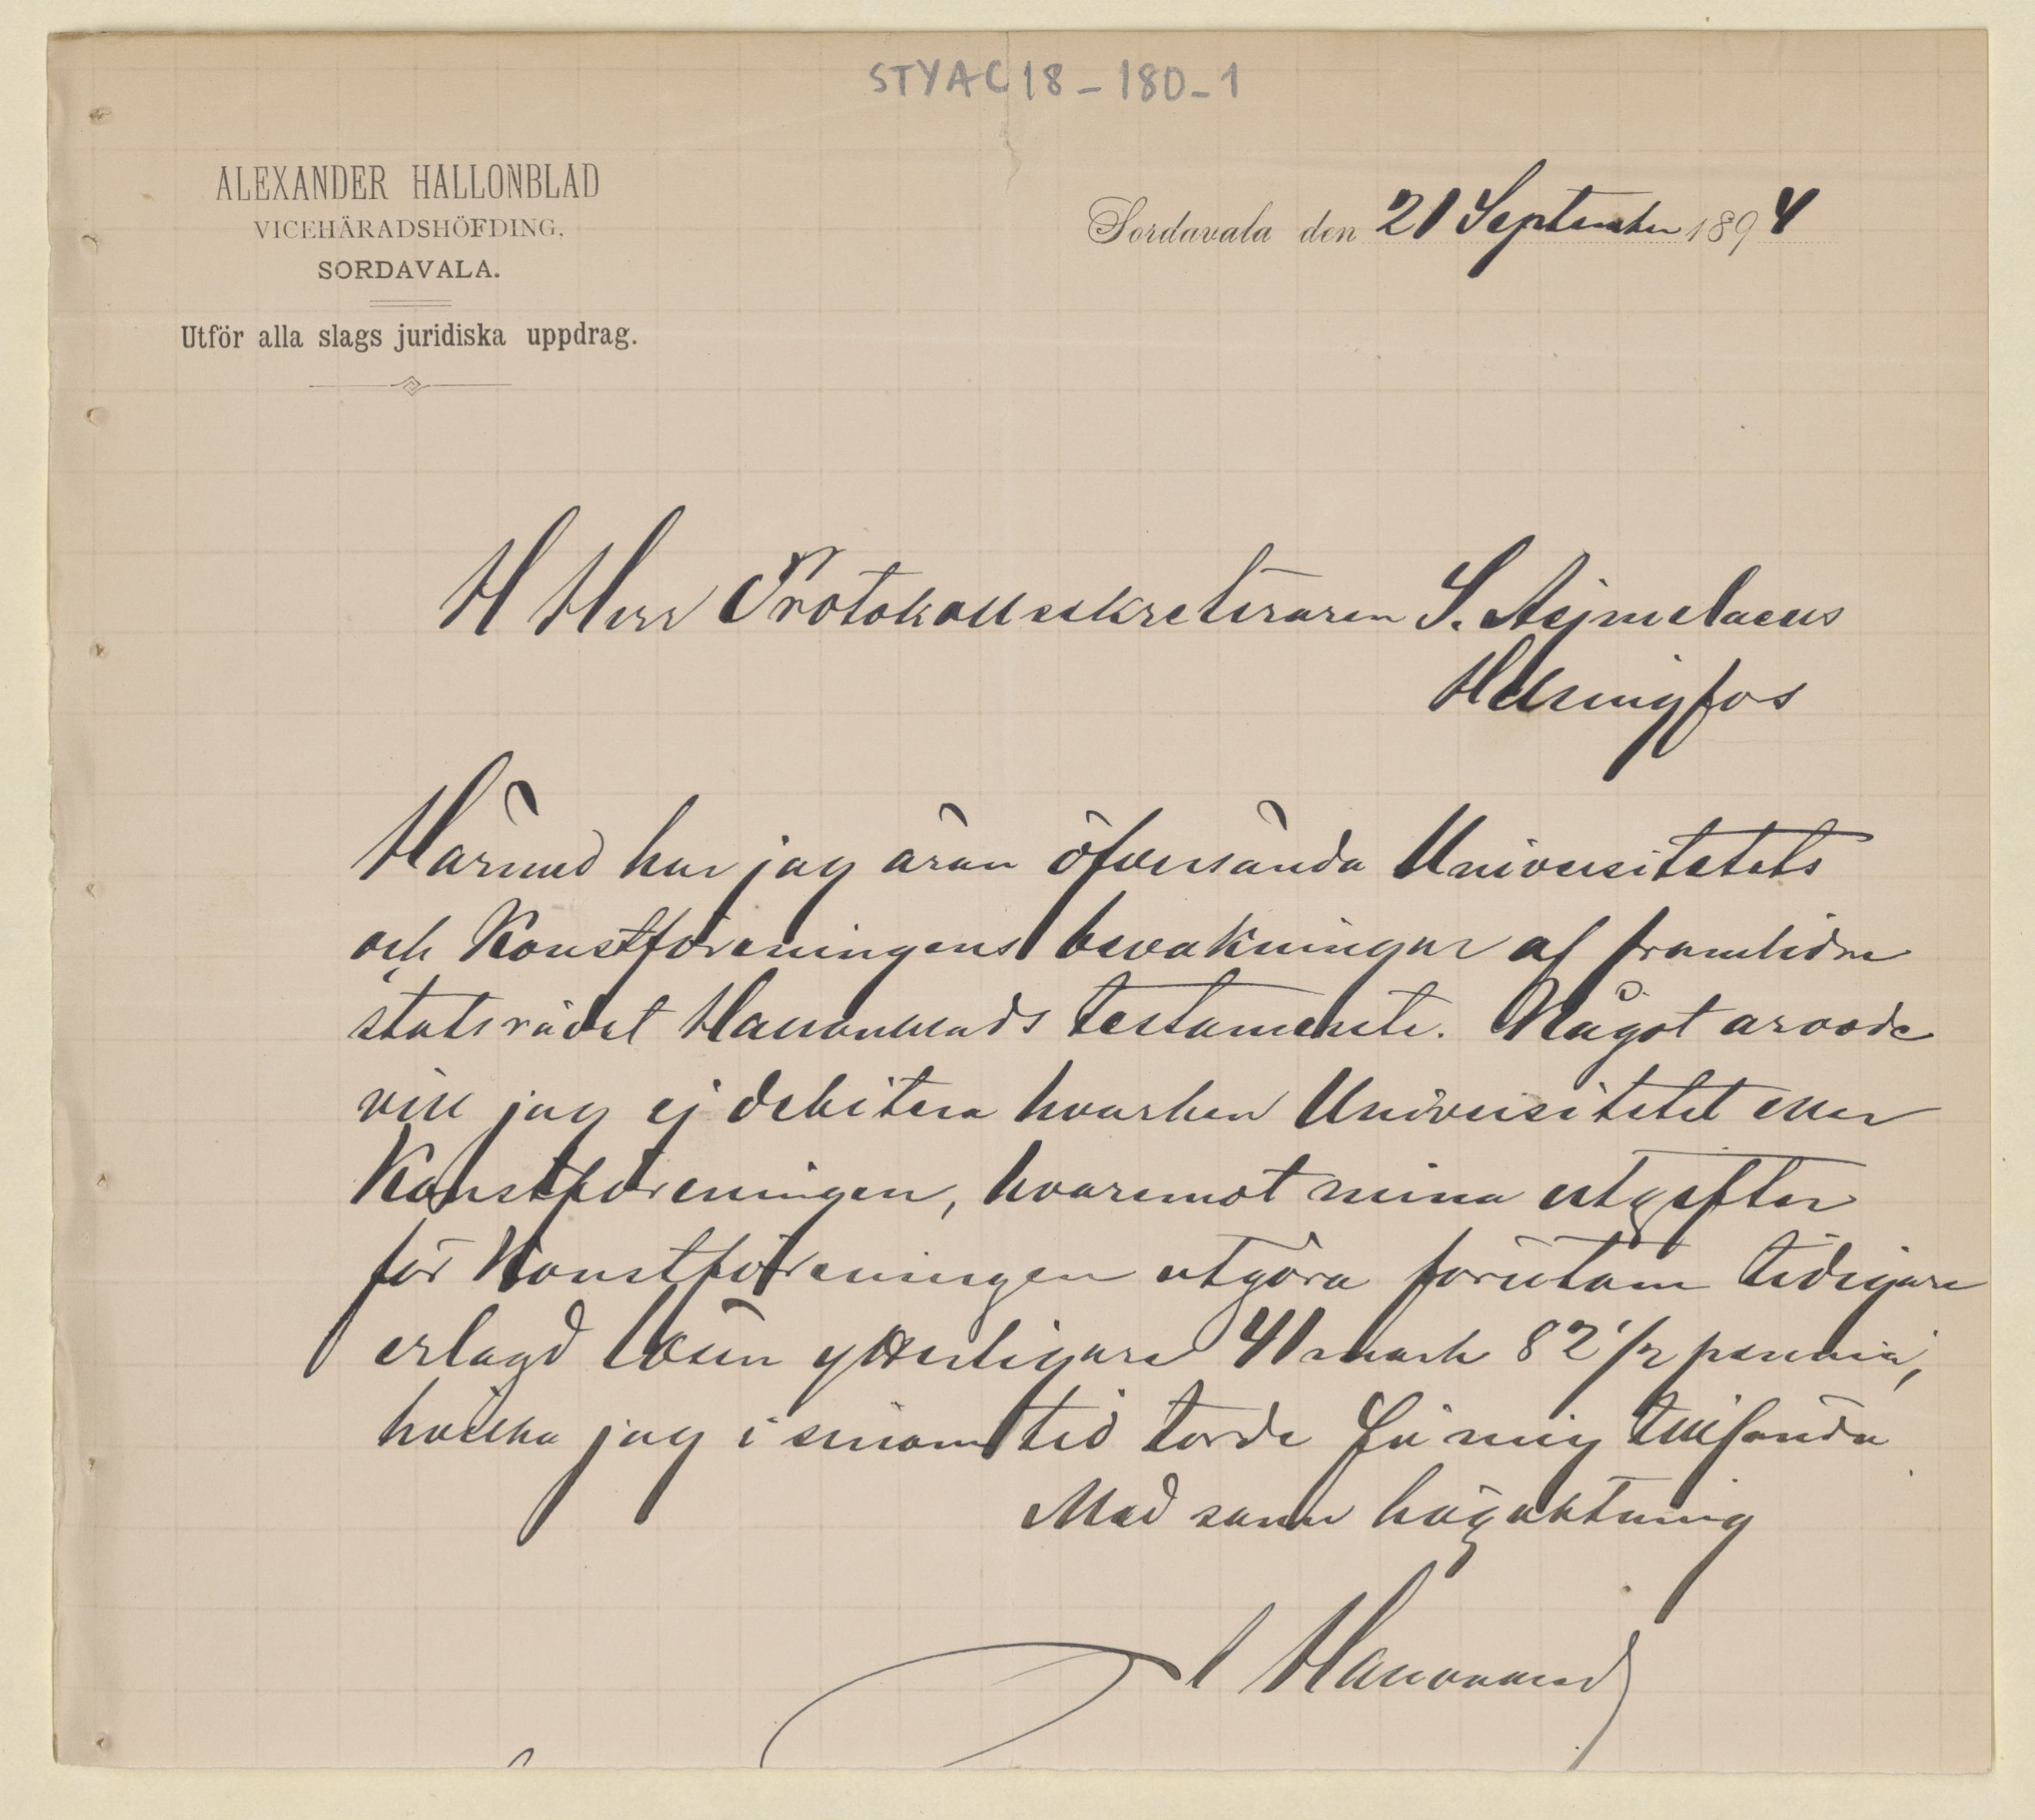 STYAC18-180-1
ALEXANDER HALLONBLAD
VICEHÄRADSHÖFDING,
SORDAVALA.
Utför alla slags juridiska uppdrag.
Sordavala den 21 September 1894
H Herr Protokollsekreteraren S. Aejmelaeus
Helsingfos
Härmed har jag äran öfversända Universitetets
och Konstföreningens bevakningar af framlidne
statsrådet Hallonblads testamente. Något arvode
vill jag ej debitera hvarken Universitetet eller
Konstföreningen, hvaremot mina utgifter
för Konstföreningen utgöra förutom tidigare
erlagd lösen ytterligare 41 mark 82 1/2 penniä,
hvilka jag i sinom tid torde få mig tillsända
Med sann högaktning
A Hallonblad